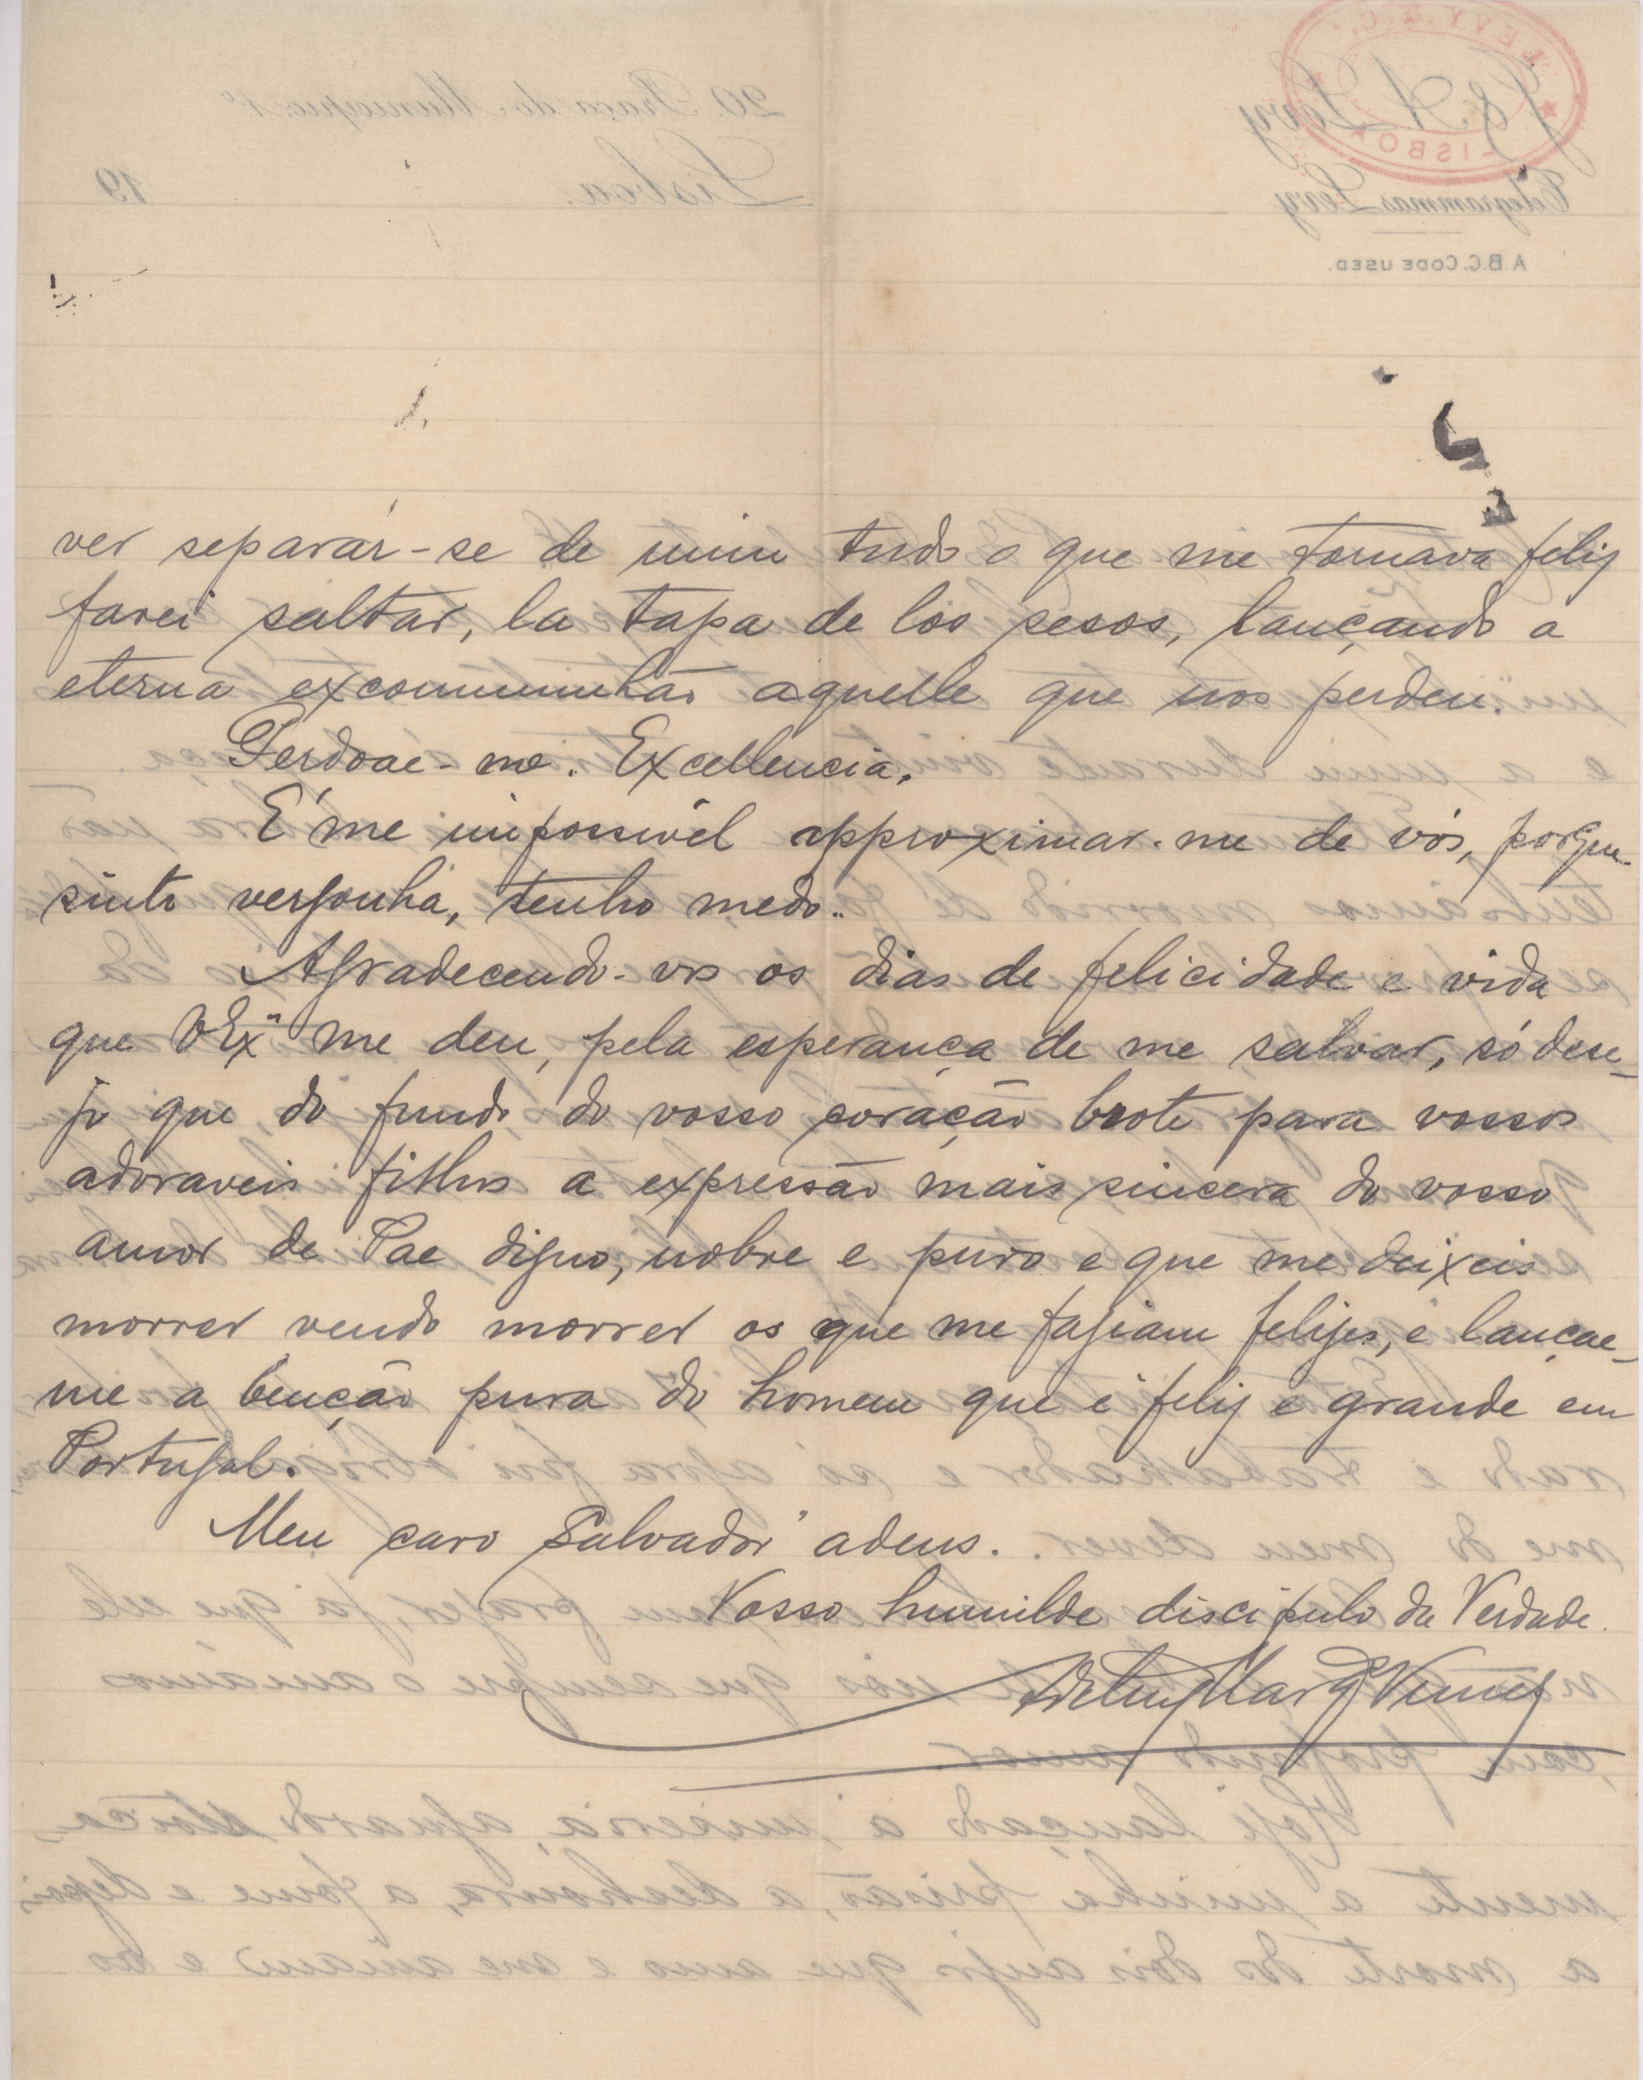 ver separár-se de mim tudo o que me tornava feliz
farei saltar, la tapa de los sesos, lançando a
eterna excommunhão aquelle que nos perdeu.
Perdoae-me. Excellencia.
E'me impossivel approximar-me de vós, porque
sinto vergonha, tenho medo..
Agradecendo-vos os dias de felicidade e vida
que VExª me deu, pela esperança de me salvar, só dese-
jo que do fundo do vosso coração brote para vossos
adoraveis filhos a expressão mais sincera do vosso
amor de Pae digno, nobre e puro e que me deixeis
morrer vendo morrer os que me fasiam felizes, e lançae-
me a benção pura do homem que é feliz e grande em
Portugal.
Meu caro Salvador adeus.
Vosso humilde discipulo da Verdade.